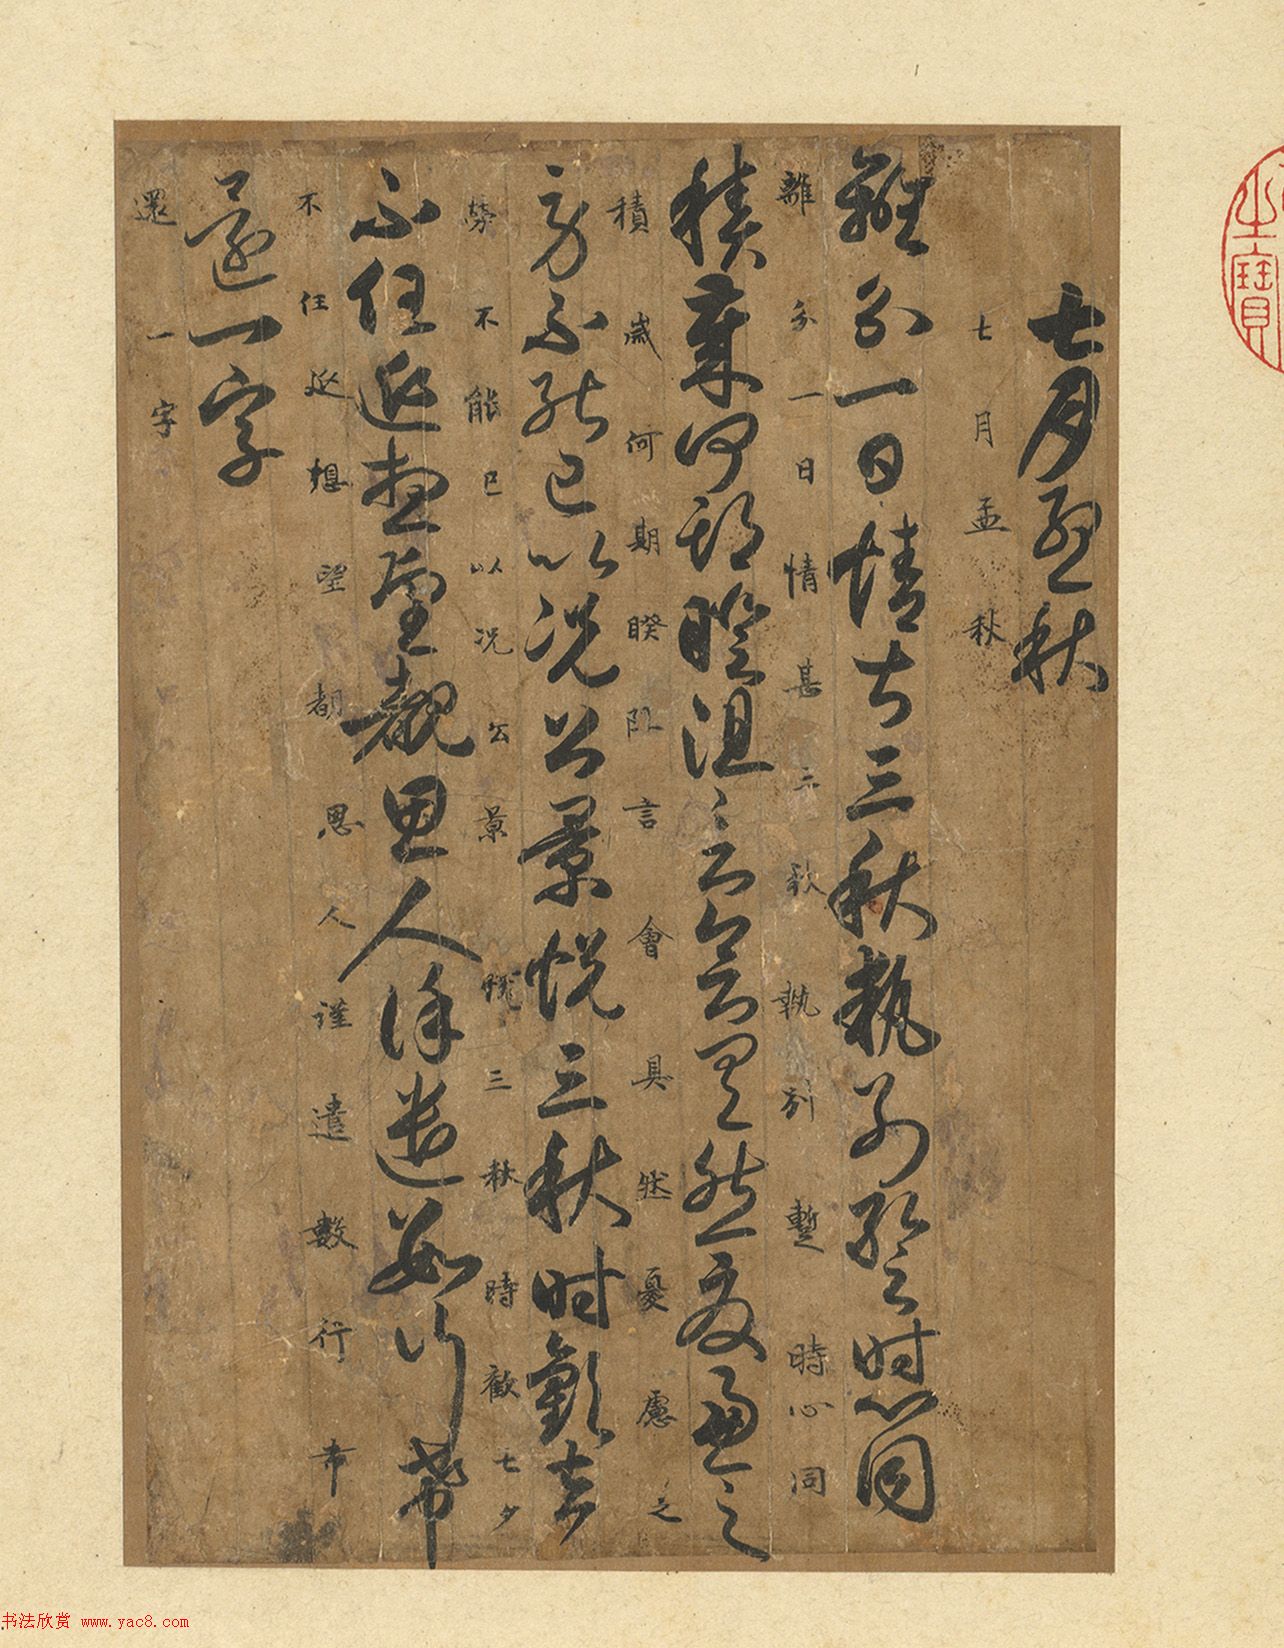 七月孟秋
七月孟秋
離分一日情甚三秋執別暫時心同
離分一日情甚三秋執別暫時心同
積歲何期睽阻言會具然憂慮之
積歲何期睽阻言會具狀憂慮之
勞不能已以況公景悦三秋時歡七夕
勞不能已以况公景悦三秋時歡七夕
不任延想望都思人謹遣數行希
不任延想望都思人謹遣數行希
還一字
還一字
之寶
书法欣赏 www.yac8.com